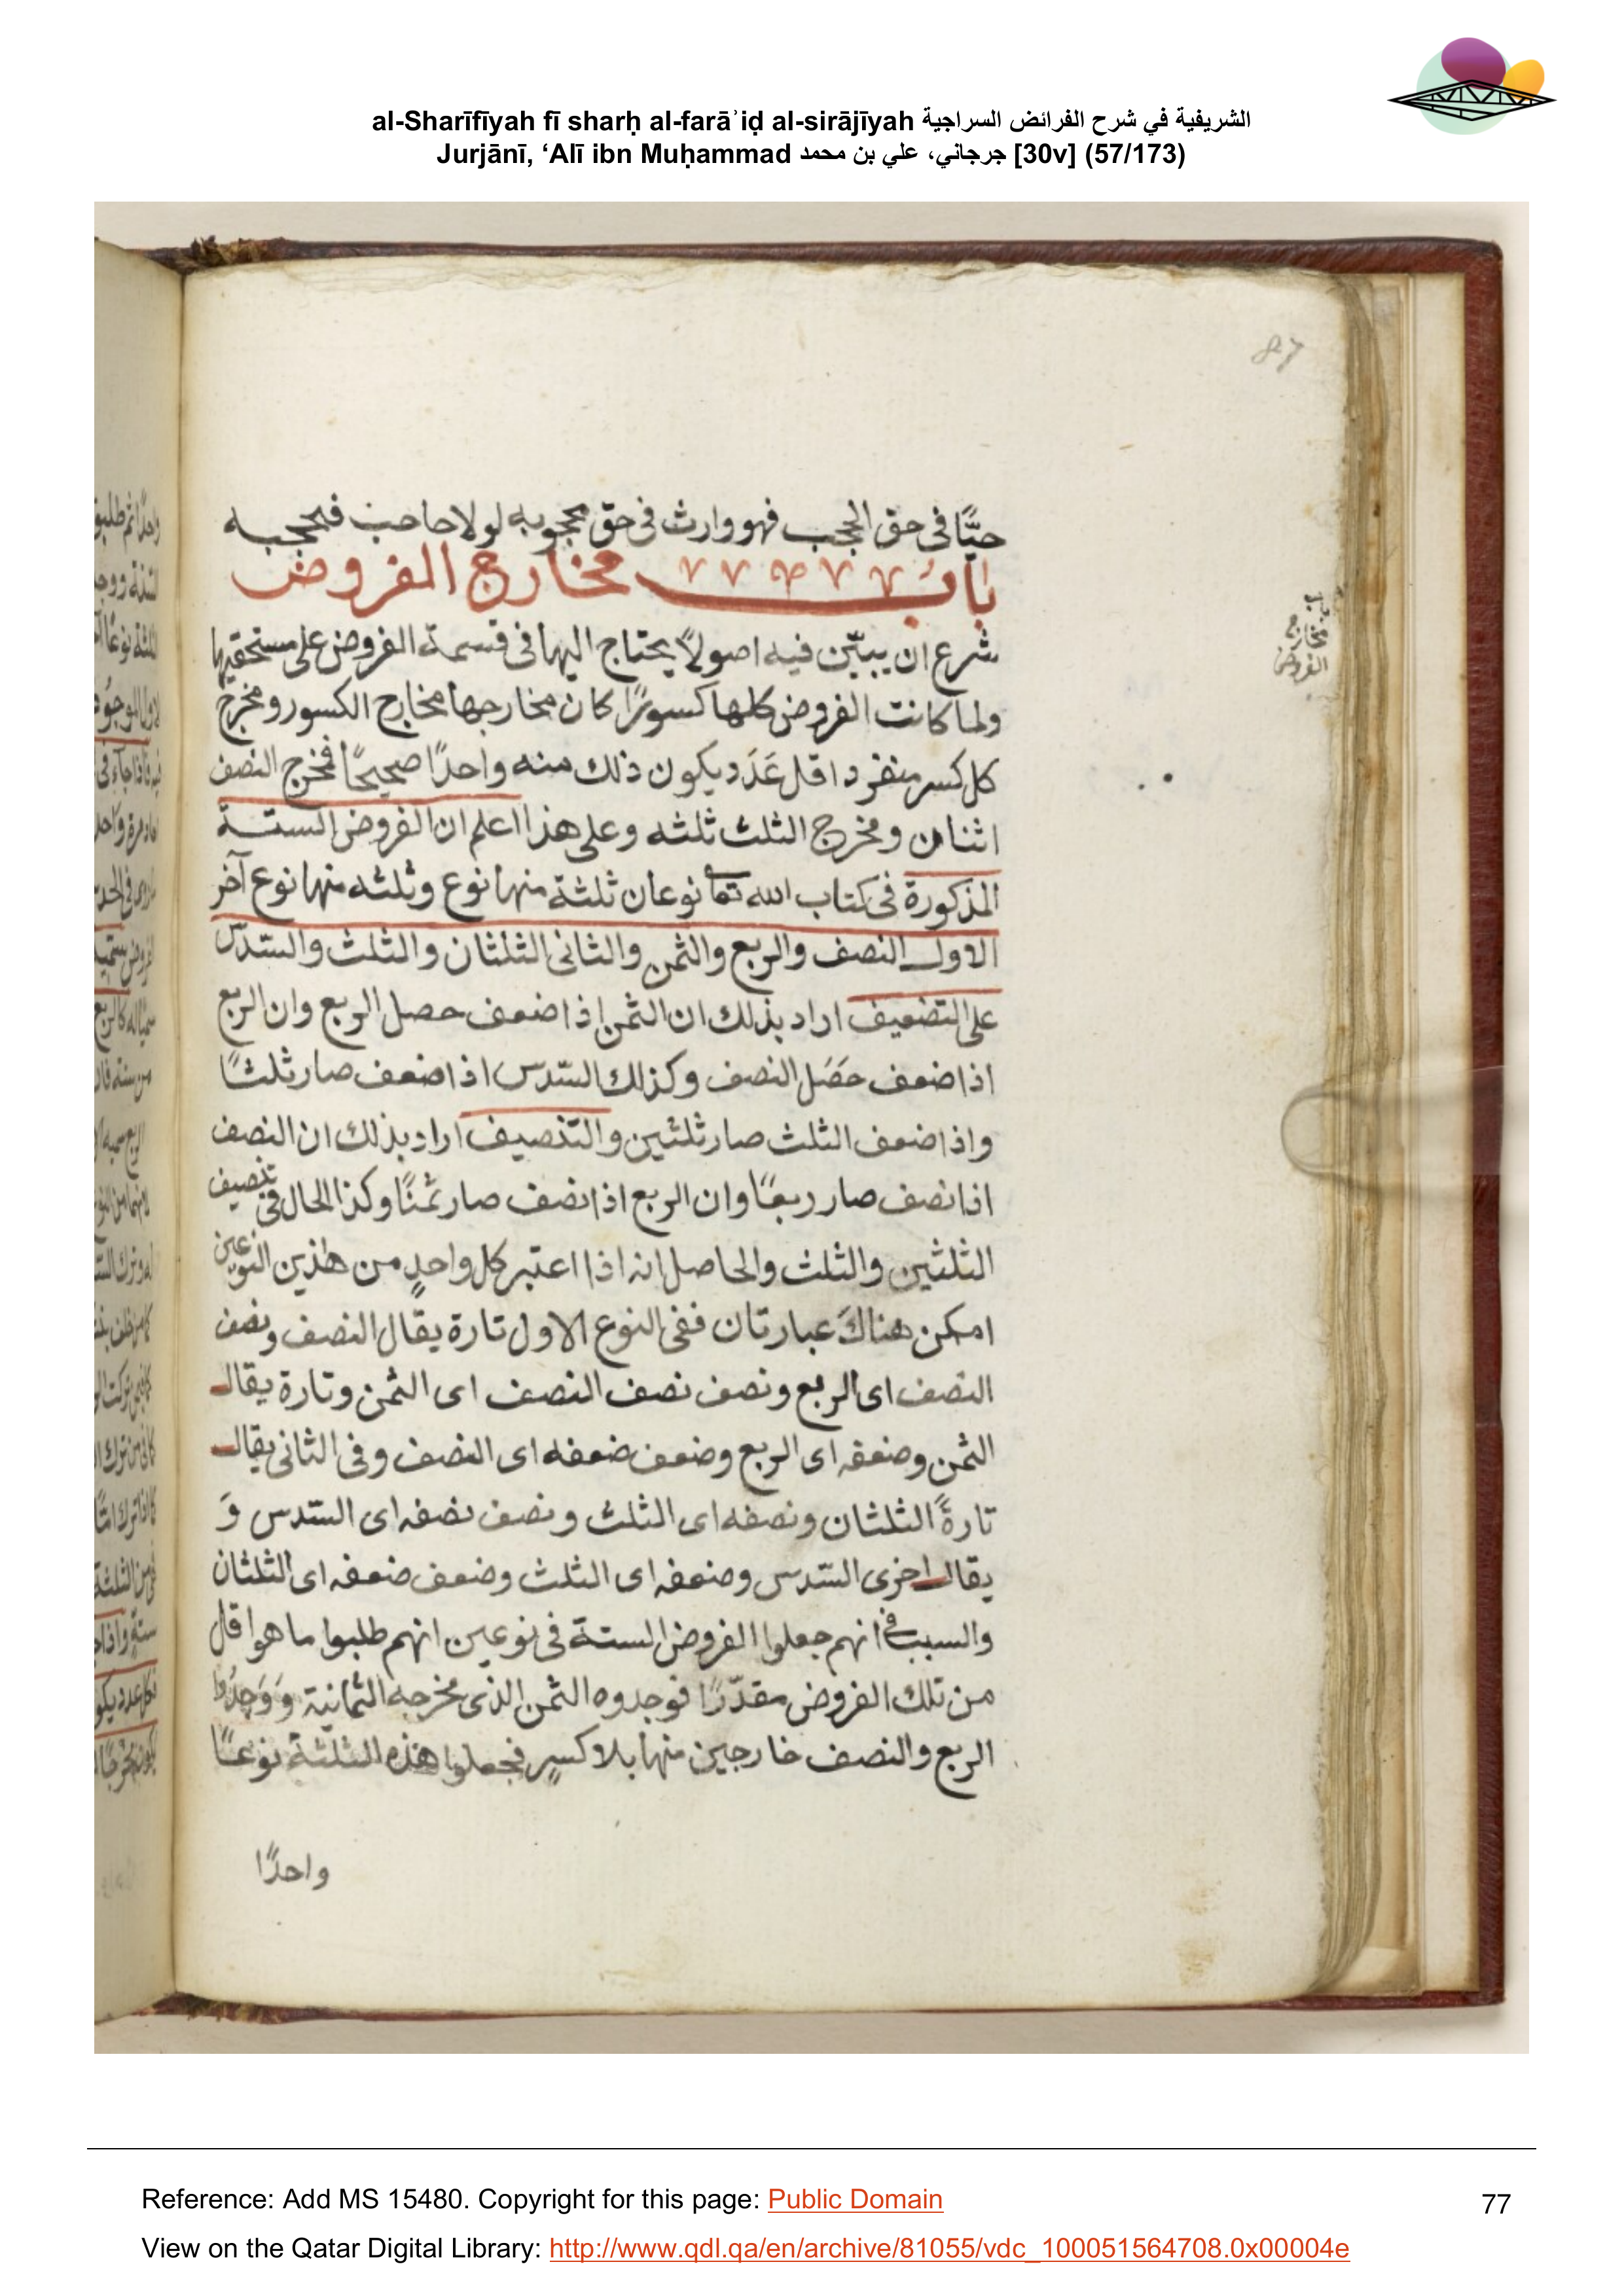 al-Sharīfīyah fī sharḥ al-farāʾiḍ al-sirājīyah الشريفية في شرح الفرائض السراجية
Jurjānī, ‘Alī ibn Muḥammad جرجاني، علي بن محمد [30v] (57/173)
87
حيًّا فى حق الحجب فهو وارث فى حق محجوبه لولا حاجب فحجبه
باب مخارج الفروض
باب
مخارج
الفروض
شرع ان يبيّن فيه اصولاً يحتاج اليها فى قسمة الفروض على مستحقيها
ولما كانت الفروض كلها كسورًا كان مخارجها مخارج الكسور ومخرج
كل كسر منفرد اقل عَدَد يكون ذلك منه واحدًا صحيحًا فمخرج النصف
اثنان ومخرج الثلث ثلثه وعلى هذا اعلم ان الفروض الستة
المذكورة فى كتاب الله تعا نوعان ثلثة منها نوع وثلثه منها نوع آخر
الاول النصف والربع والثمن والثانى الثلثان والثلث والسّدس
على التضعيف اراد بذلك ان الثمن اذا ضعف حصل الربع وان الربع
اذا ضعف حَصَل النصف وكذلك السّدس اذا ضعف صار ثلثًا
واذا ضعف الثلث صار ثلثين والتنصيف اراد بذلك ان النصف
اذا نصف صار ربعًا وان الربع اذا نصف صار ثمنًا وكذا الحال فى تنصيف
الثلثين والثلث والحاصل انه اذا اعتبر كل واحدٍ من هذين النوعين
امكن هناكَ عبارتان ففى النوع الاول تارة يقال النصف ونصف
النصف اى الربع ونصف نصف النصف اى الثمن وتارة يقال
الثمن وضعفه اى الربع وضعف ضعفه اى النصف وفى الثانى يقال
تارةً الثلثان ونصفه اى الثلث ونصف نصفه اى السّدس وَ
يقال اخرى السّدس وضعفه اى الثلث وضعف ضعفه اى الثلثان
والسبب فى انهم جعلوا الفروض الستة فى نوعين انهم طلبوا ما هو اقل
من تلك الفروض مقدّرًا فوجدوه الثمن الذى مخرجه الثمانية وَوَجدُوا
الربع والنصف خارجين منها بلا كسرٍ فجعلوا هذه الثلثة نوعًا
واحدًا
Reference: Add MS 15480. Copyright for this page: Public Domain
77
View on the Qatar Digital Library: http://www.qdl.qa/en/archive/81055/vdc_100051564708.0x00004e